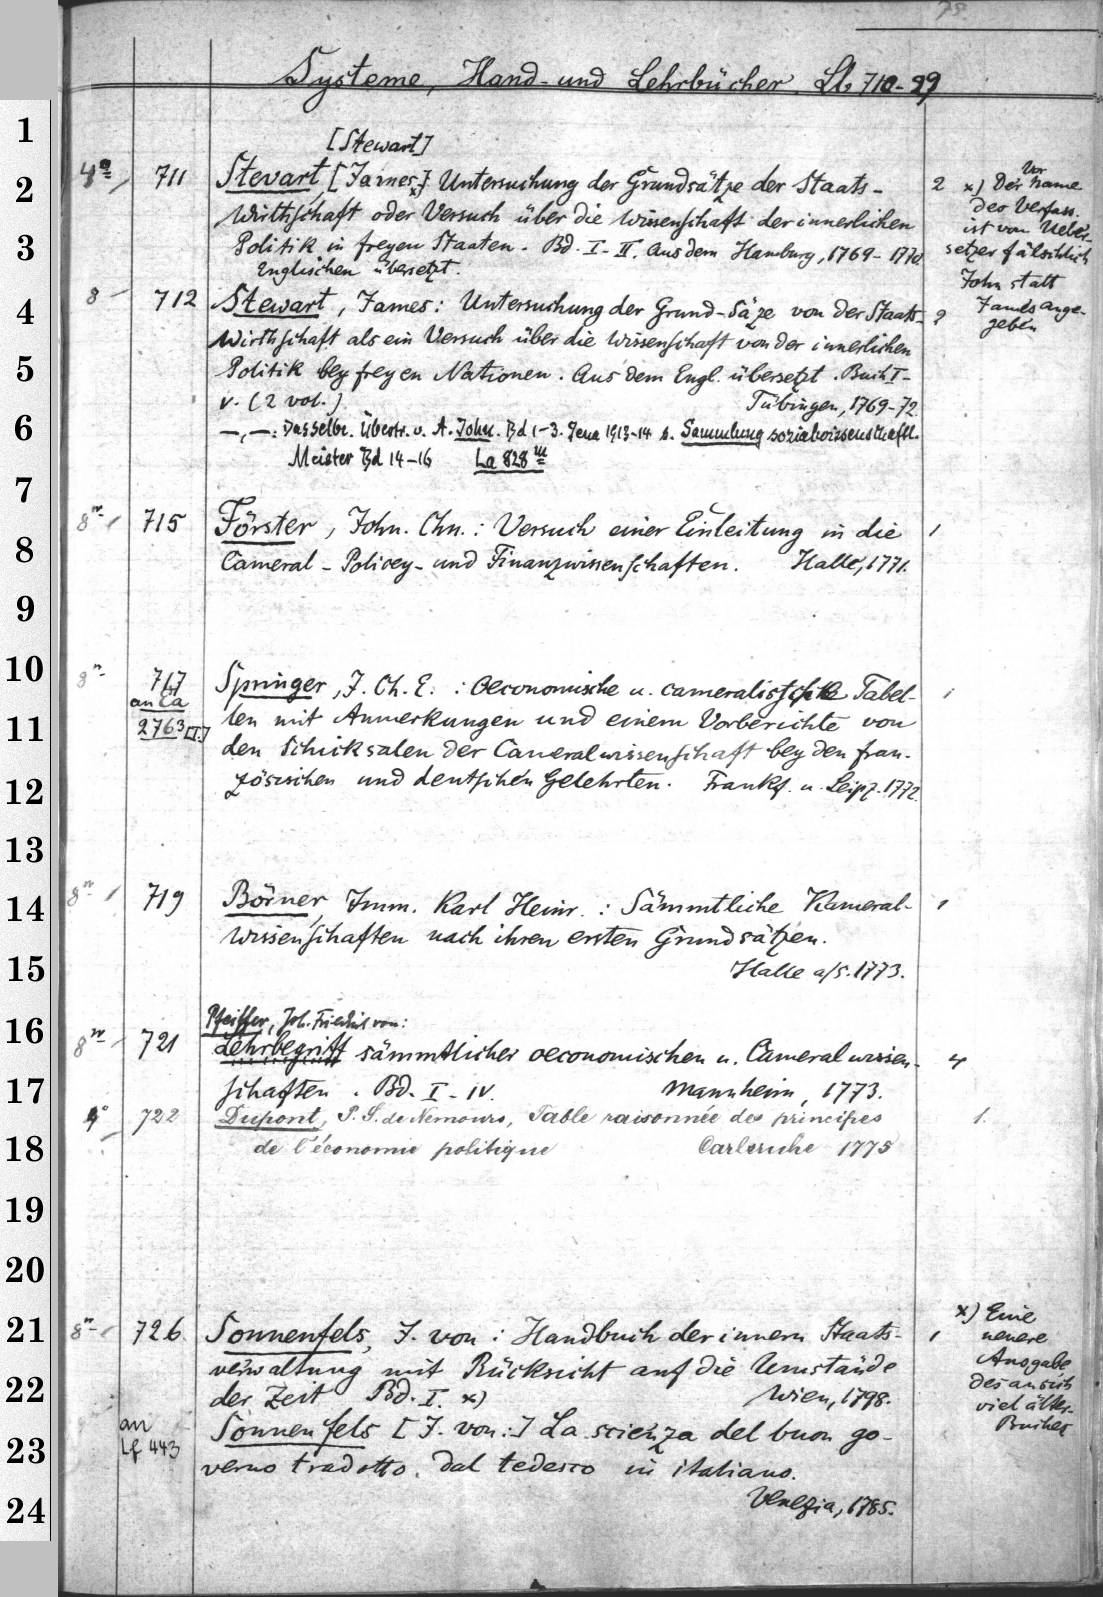 75.
Systeme, Hand- und Lehrbücher. Ll. 710-99
1
[Stewart]
4° 711 Stevart, [James x)] Untersuchung der Grundsätze der Staats- 2 x) Der Vorname
2
Wirthschaft oder Versuch über die Wissenschaft der innerlichen des Verfass.
ist vom Ueber-
3 Politik in freyen Staaten. Bd. I-II. Aus dem Hamburg, 1769-1770. setzer fälschlich
Englischen übersetzt. John statt
8 712 Stewart, James: Untersuchung der Grund-Säze von der Staats- 2 James ange-
4 geben
Wirthschaft als ein Versuch über die Wissenschaft von der innerlichen
5 Politik bey freyen Nationen. Aus dem Engl. übersetzt. Buch I-
V. (2 vol.) Tübingen, 1769-72.
6 —,—: Dasselbe. Übers. v. A. John. Bd 1-3. Jena 1913-14 s. Sammlung sozialwissenschaftl.
Meister Bd 14-16 La 828 m
7
8° 715 Förster, John. Chn.: Versuch einer Einleitung in die 1
8 Cameral- Policey- und Finanzwissenschaften. Halle, 1771.
9
10 8° 717 Springer, J. Ch. E.: Oeconomische u. cameralistische Tabel- 1
an Ca
11 2763 [I.] len mit Anmerkungen und einem Vorberichte von
den Schicksalen der Cameralwissenschaft bey den fran-
12 zösischen und deutschen Gelehrten. Frankf. u. Leipz. 1772.
13
14 8° 719 Börner, Imm. Karl Heinr.: Sämmtliche Kameral- 1
Wissenschaften nach ihren ersten Grundsätzen.
15 Halle a/S. 1773.
16 Pfeiffer, Joh. Friedrich von:
8° 721 Lehrbegriff sämmtlicher oeconomischen u. Cameralwissen- 4
17 schaften. Bd. I-IV. Mannheim, 1773.
4° 722 Dupont, P. S. de Nemours, Table raisonnée des principes 1.
18 de l'économie politique Carlsruhe 1775
19
20
x) Eine
21 8° 726 Sonnenfels, J. von: Handbuch der innern Staats- 1 neuere
verwaltung mit Rücksicht auf die Umstände Ausgabe
22 der Zeit Bd. I. x) Wien, 1798. des an sich
viel älter.
an Sonnenfels [J. von:] La scienza del buon go- Buches
23 Lf 443
verno tradotto. dal tedesco in italiano.
24 Venezia, 1785.